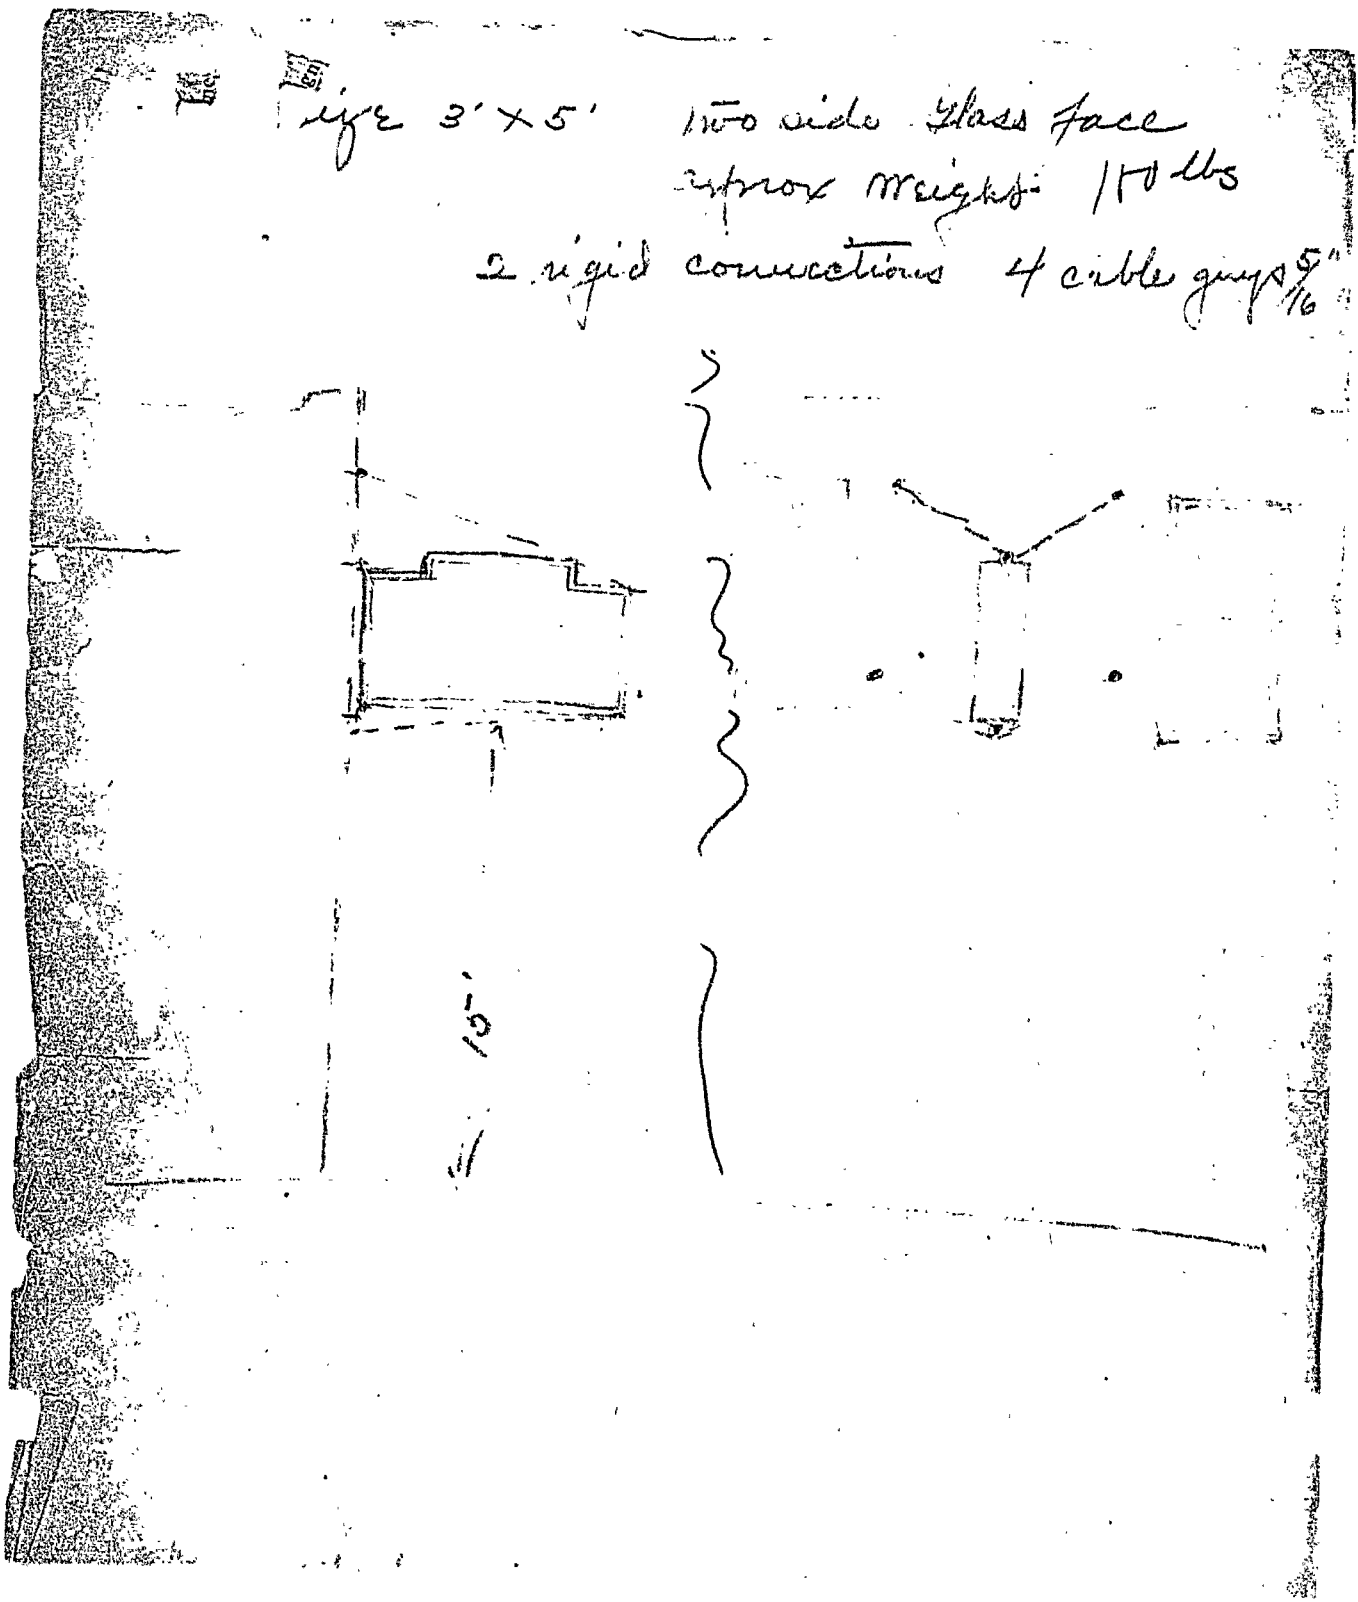 size 3' x 5' Two side Glass Face
approx Weight
2 rigid connections 4 cable guys 5/16"
15'